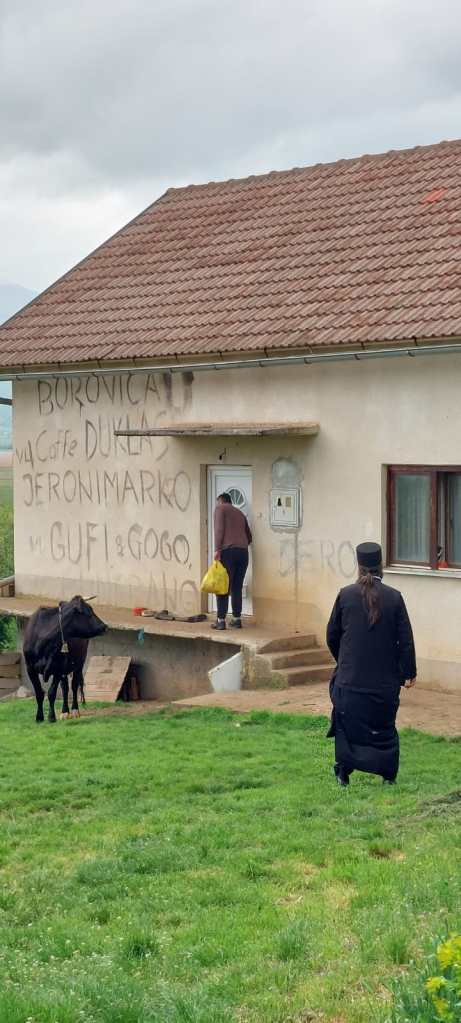 BOROVICA
via Caffe DUKLAS
JERONIMARKO
GUFI & GOGO,
DERO